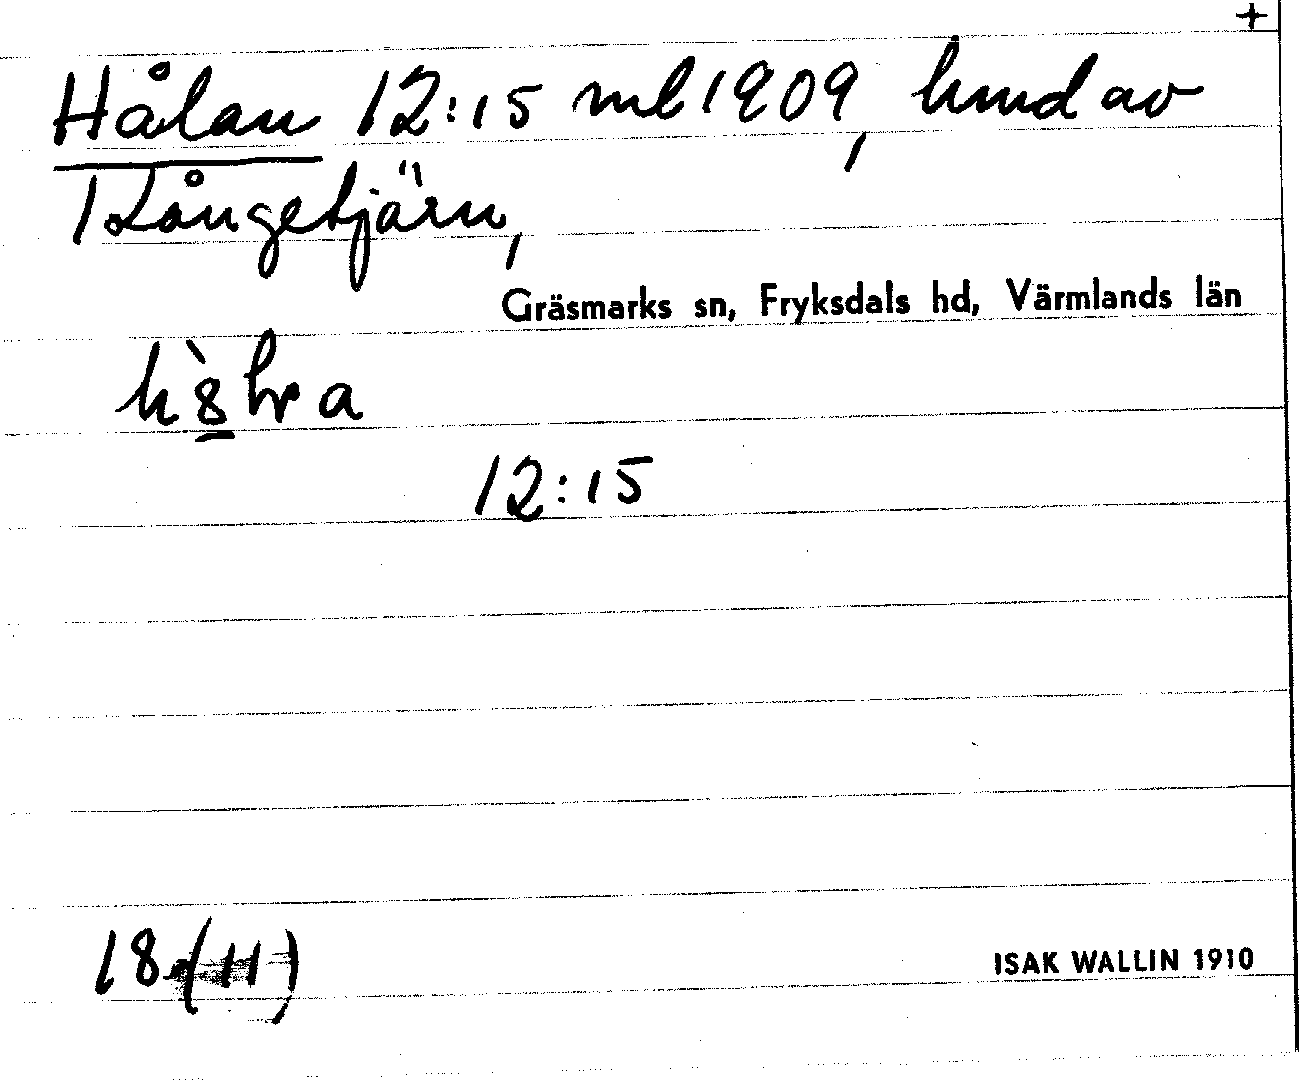 +
Hålan 12:15 ml 1909, hmd av
Långetjärn,
Gräsmarks sn, Fryksdals hd, Värmlands län
12:15
18 (11)
ISAK WALLIN 1910